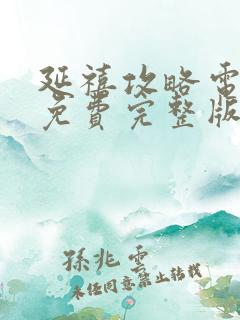 延禧攻略電
免費完整版
孫兆雲
未任同意禁止转载